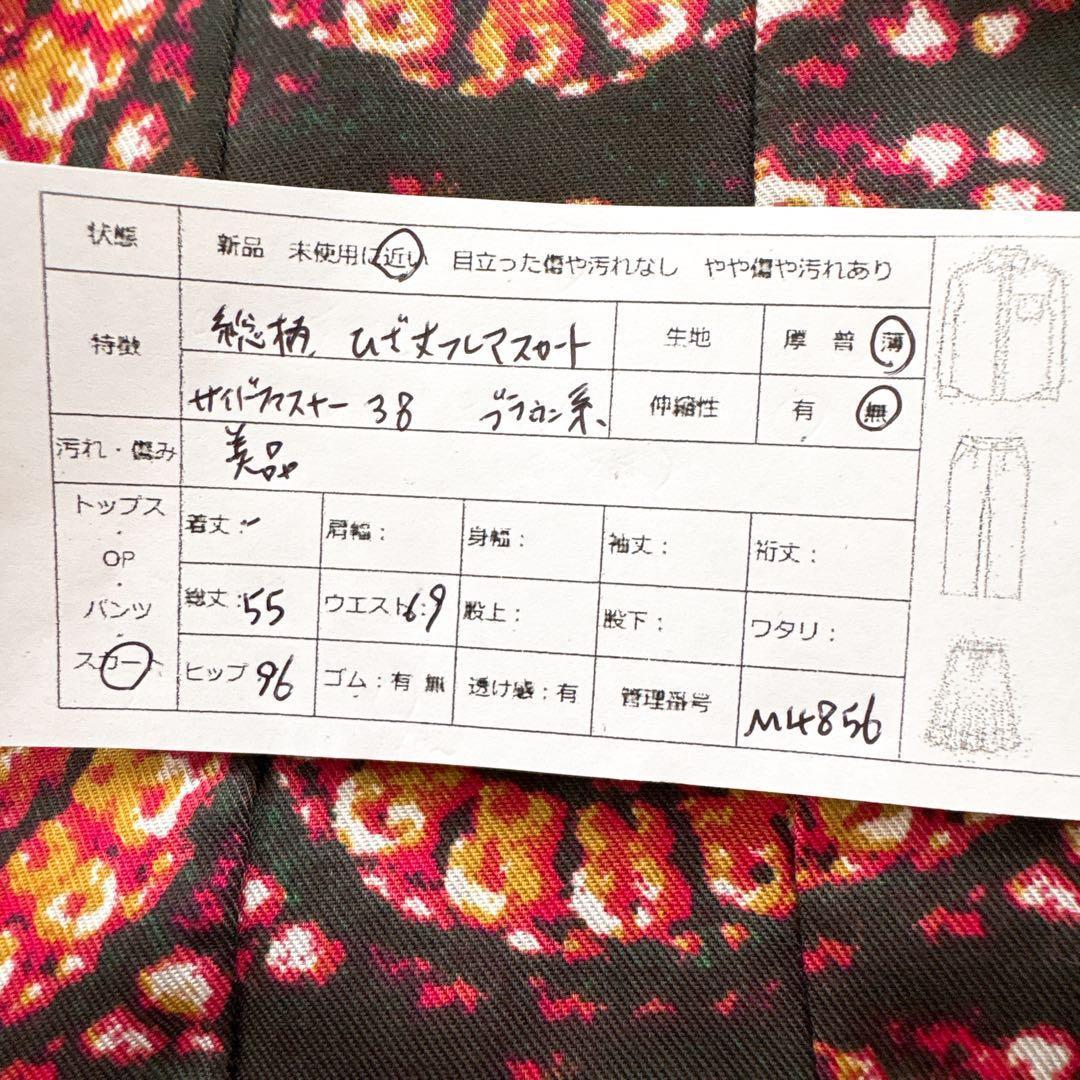 状態 新品 未使用に近い 目立った傷や汚れなし やや傷や汚れあり
特徴 総柄 ひざ丈フレアスカート 生地 厚 普 薄
サイドファスナー 38 ブラウン系、 伸縮性 有 無
汚れ・傷み 美品。
トップス
・
OP
・
パンツ
・
スカート
着丈: 肩幅: 身幅: 袖丈: 裄丈:
総丈:55 ウエスト:69 股上: 股下: ワタリ:
ヒップ 96 ゴム:有 無 透け感:有 管理番号 M4856